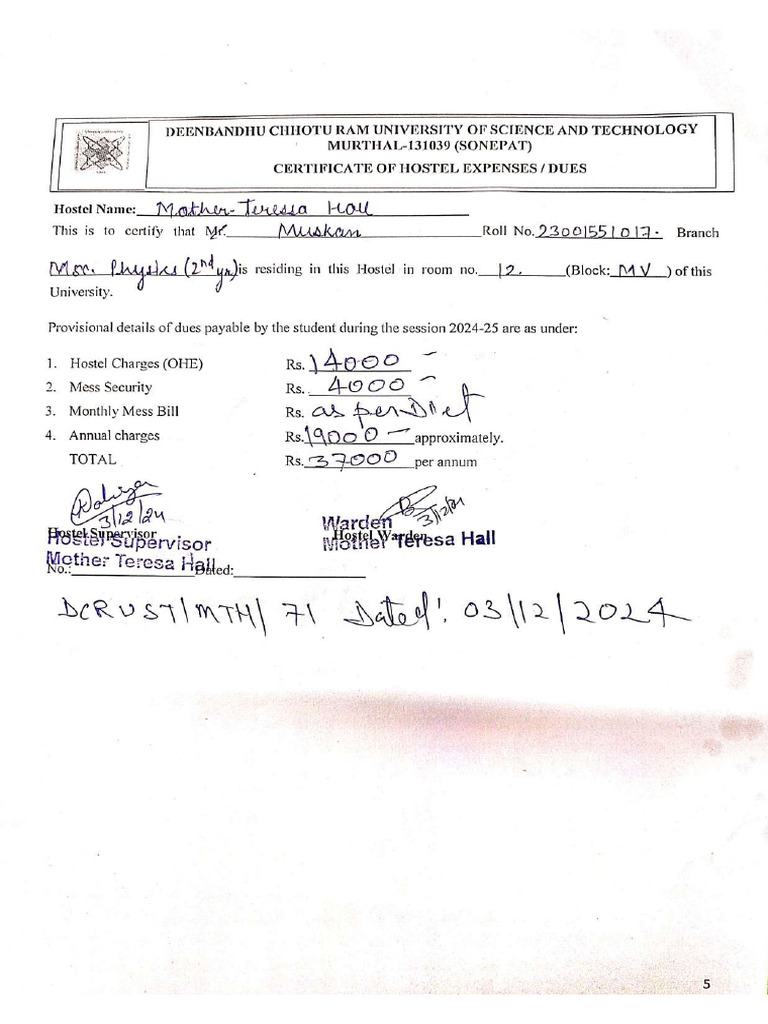 DEENBANDHU CHHOTU RAM UNIVERSITY OF SCIENCE AND TECHNOLOGY
MURTHAL-131039 (SONEPAT)
CERTIFICATE OF HOSTEL EXPENSES / DUES
Hostel Name: Mother-Teressa Hall
This is to certify that Mr. Muskan Roll No. 23001551017. Branch
Msc. Physics (2nd yr) is residing in this Hostel in room no. 12. (Block: MV) of this
University.
Provisional details of dues payable by the student during the session 2024-25 are as under:
1. Hostel Charges (OHE) Rs. 14000 -
2. Mess Security Rs. 4000 -
3. Monthly Mess Bill Rs. as per Diet
4. Annual charges Rs. 19000 - approximately.
TOTAL Rs. 37000 per annum
3/12/24 3/12/24
Hostel Supervisor Hostel Warden
Hostel Supervisor Warden
Mother Teresa Hall Mother Teresa Hall
No.: Dated:
DCRUST/MTH/ 71 Dated: 03/12/2024
5